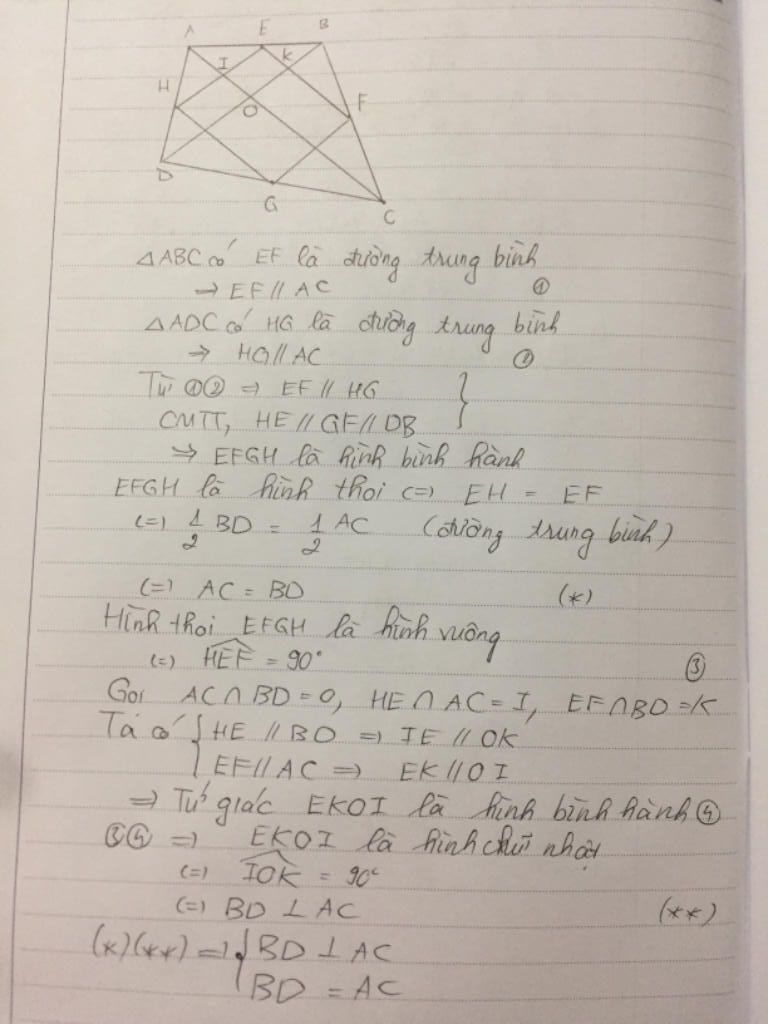 A E B
I K
H
F
O
D
G
C
△ABC có EF là đường trung bình
→ EF // AC ①
△ADC có HG là đường trung bình
→ HG // AC ②
Từ ①② ⇒ EF // HG }
CMTT, HE // GF // DB
⇒ EFGH là hình bình hành
EFGH là hình thoi (=) EH = EF
(=) 1/2 BD = 1/2 AC (đường trung bình)
(=) AC = BD (*)
Hình thoi EFGH là hình vuông
(=) \widehat{HEF} = 90° ③
Gọi AC ∩ BD = O, HE ∩ AC = I, EF ∩ BD = K
Ta có { HE // BD ⇒ IE // OK
EF // AC ⇒ EK // OI
⇒ Tứ giác EKOI là hình bình hành ④
③④ ⇒ EKOI là hình chữ nhật
(=) \widehat{IOK} = 90°
(=) BD ⊥ AC (**)
(*)(**) ⇒ { BD ⊥ AC
BD = AC